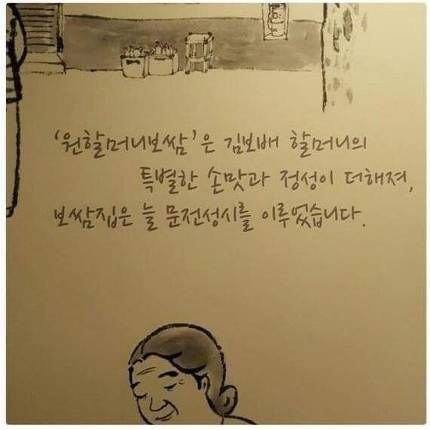 '원할머니보쌈'은 김보배 할머니의
특별한 손맛과 정성이 더해져,
보쌈집은 늘 문전성시를 이루었습니다.